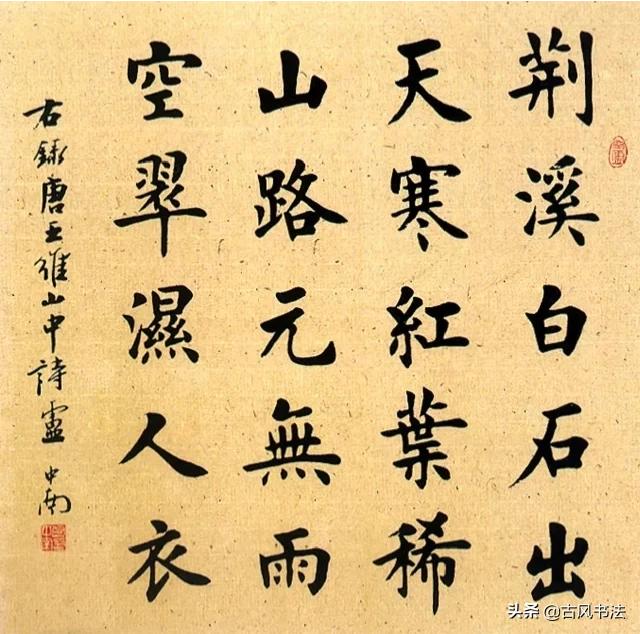 荆溪白石出
天寒紅葉稀
山路元無雨
空翠濕人衣
右録唐王維山中詩盧中南
头条 @古风书法